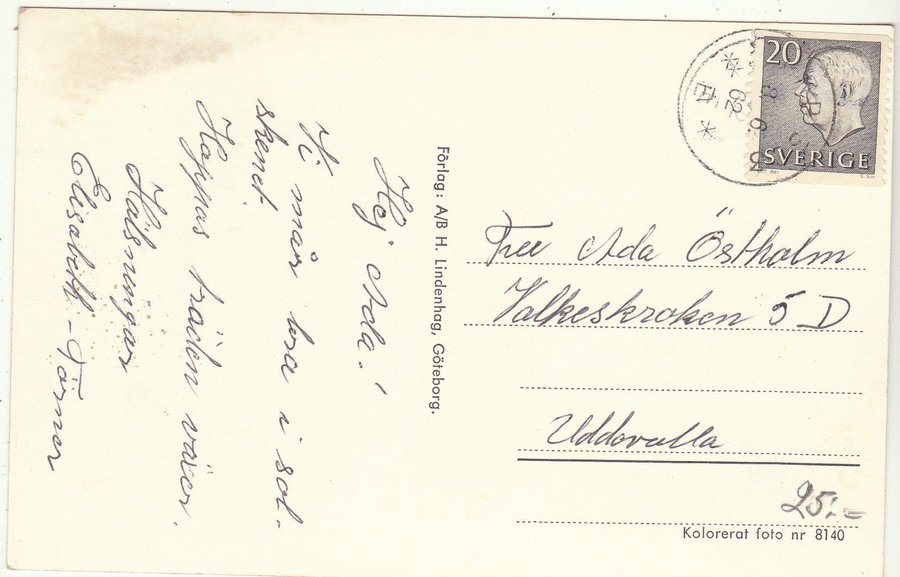 Hej Ada!
Vi mår bra i sol-
skenet.
Hoppas träden växer.
Hälsningar
Elisabeth - Törner
Förlag: A/B H. Lindenhag, Göteborg.
20
SVERIGE
Fru Ada Östholm
Valkeskroken 5 D
Uddevalla
25:-
Kolorerat foto nr 8140